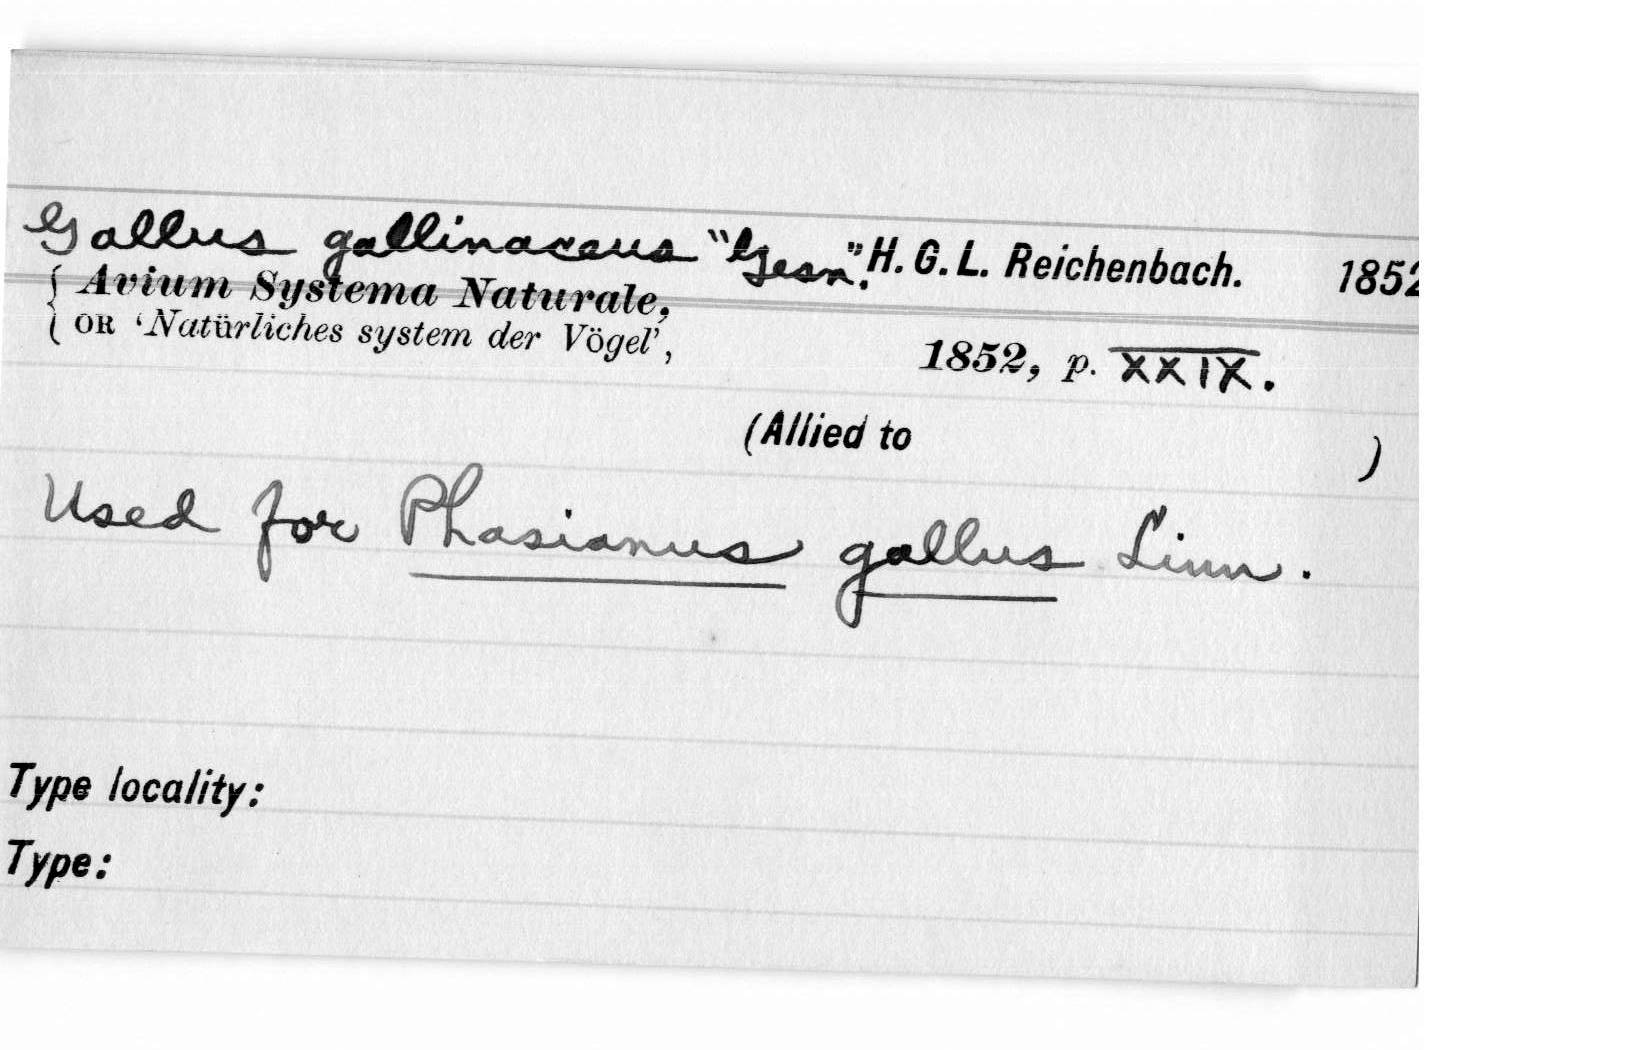 Gallus gallinaceus "Gesn". H. G. L. Reichenbach. 1852
{ Avium Systema Naturale,
OR 'Natürliches system der Vögel', 1852, p. XXIX.
(Allied to )
Used for Phasianus gallus Linn.
Type locality:
Type: